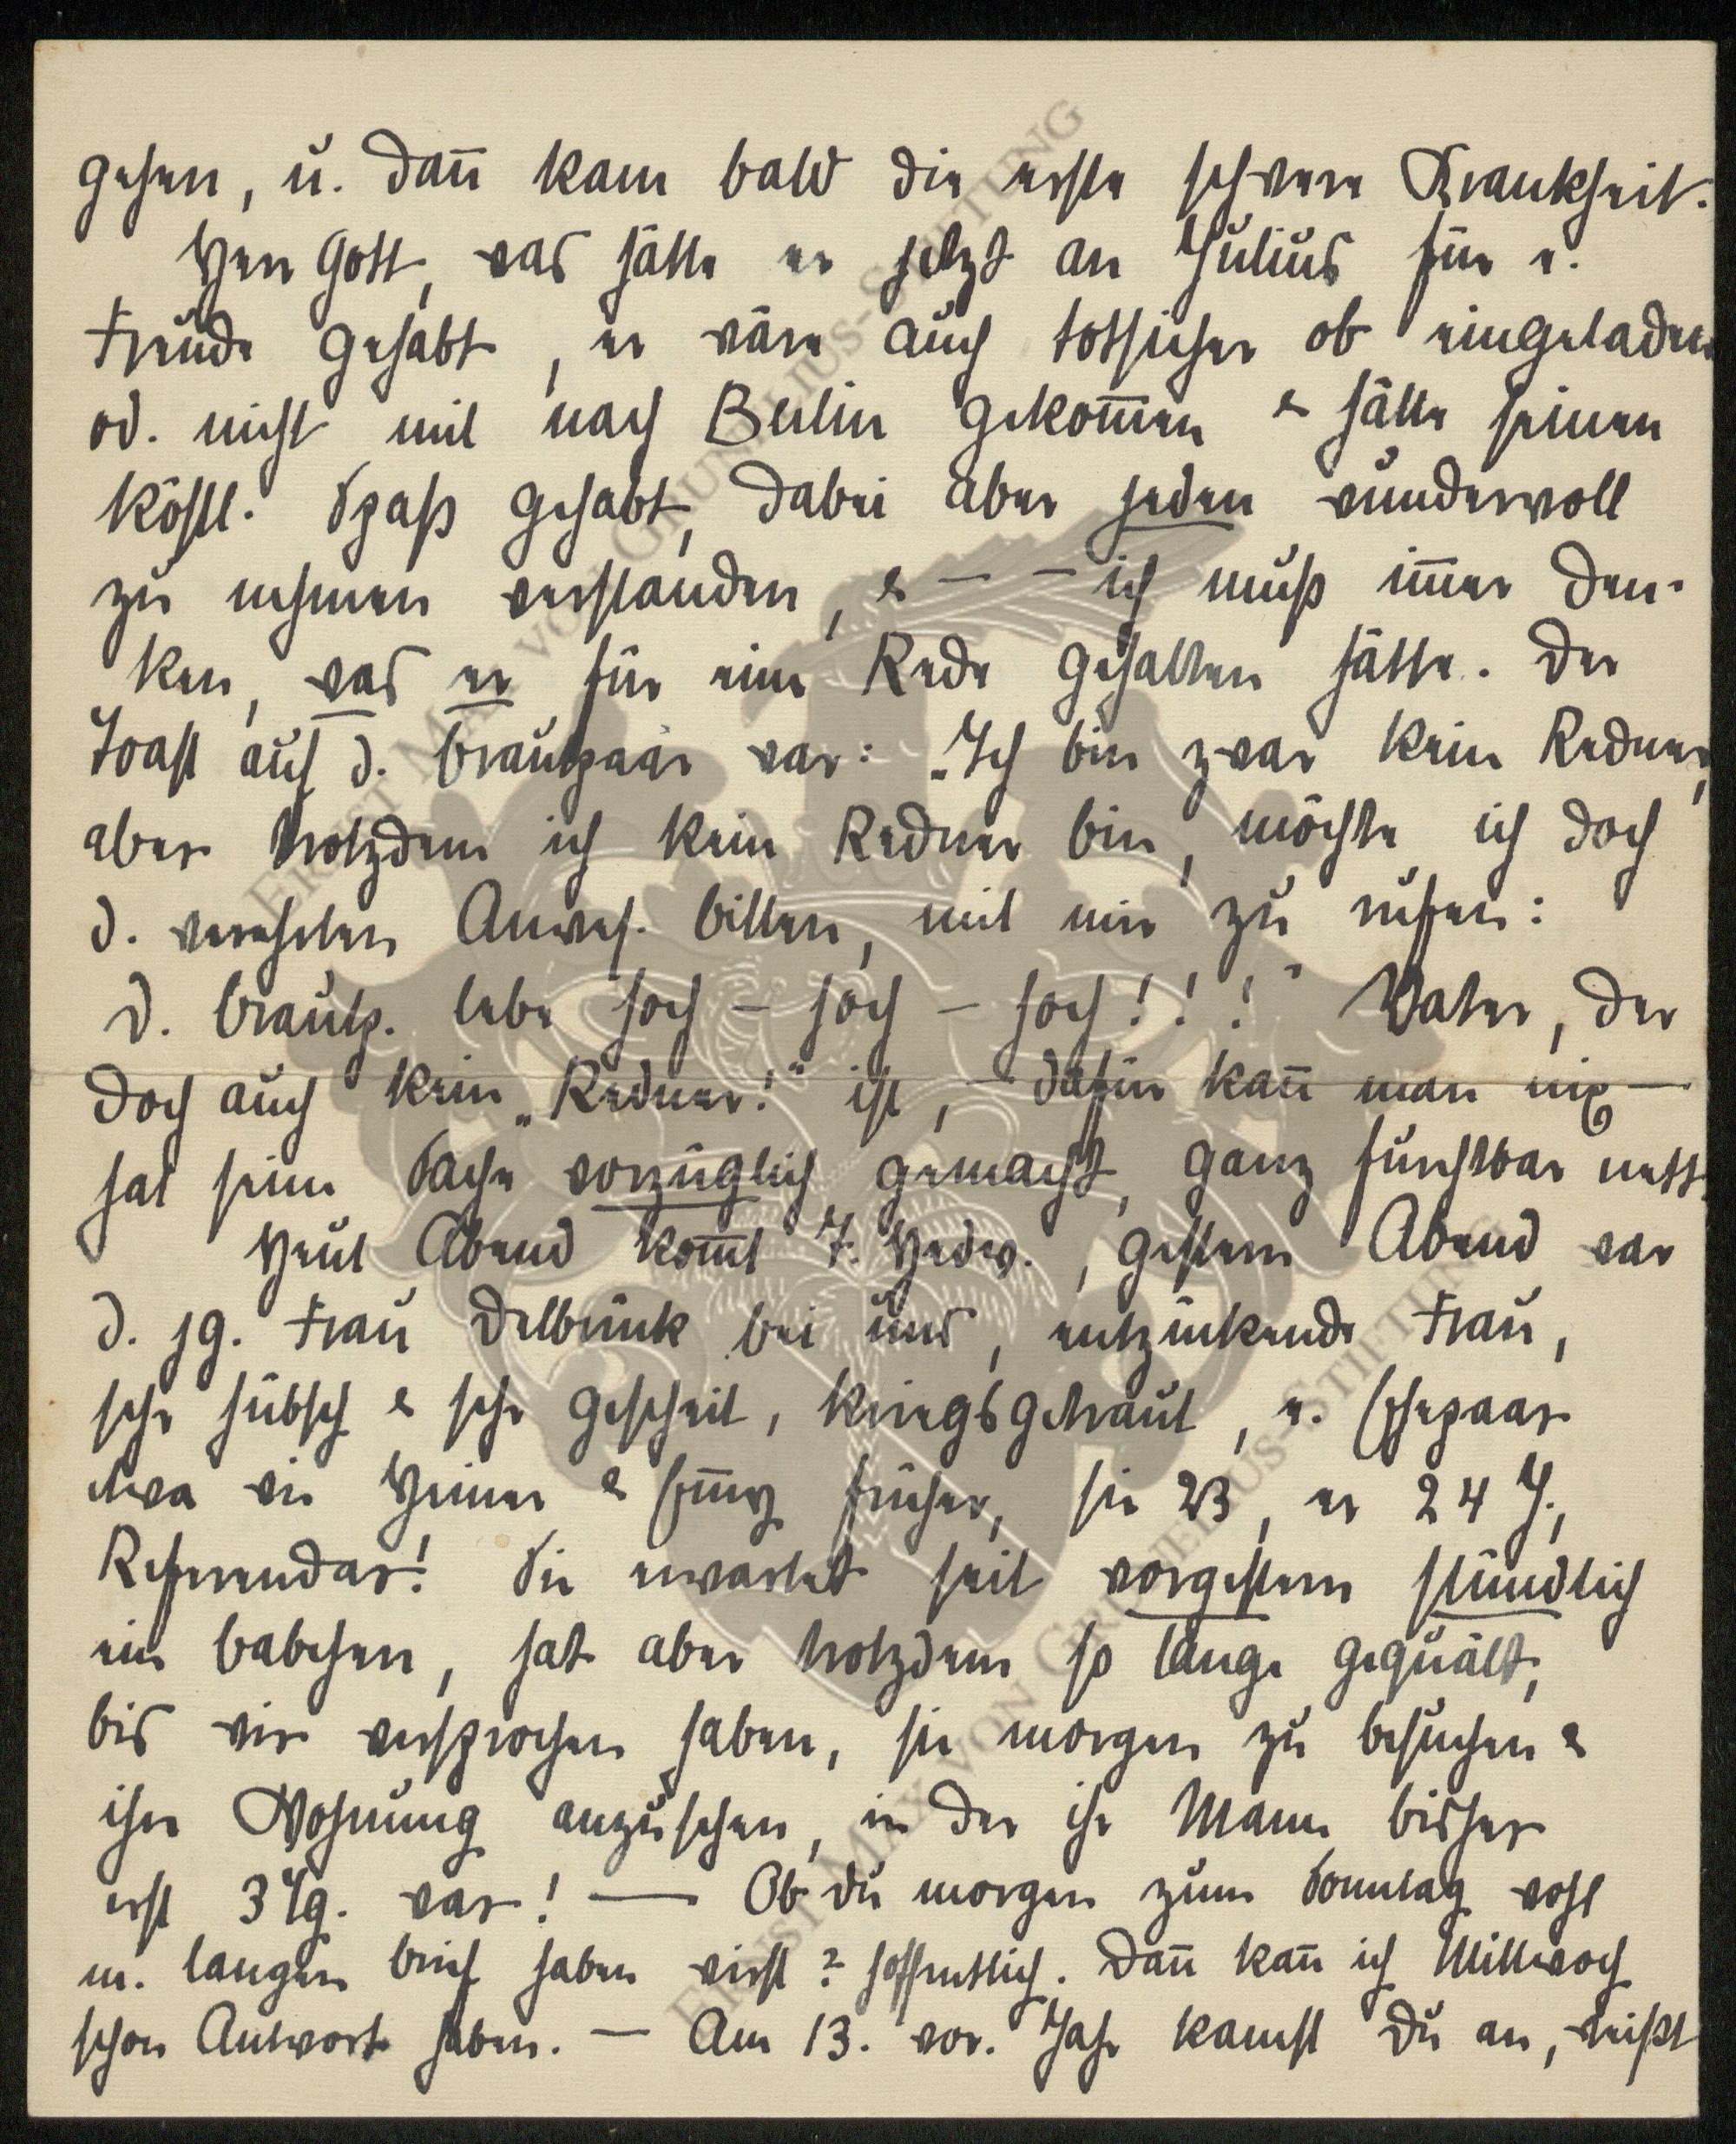 gehen, u. dañ kam bald die erste schwere Krankheit.
Herr Gott, was hätte er jetzt an Julius für e.
Freude gehabt, er wäre auch totsicher ob eingeladen
od. nicht mit nach Berlin gekom̄en & hätte seinen
köstl. Spaß gehabt, dabei aber jeden wundervoll
zu nehmen verstanden, & – – ich muß im̄er den-
ken, was er für eine Rede gehalten hätte. Der
Toast auf d. Brautpaar war: „Ich bin zwar kein Redner,
aber trotzdem ich kein Redner bin, möchte ich doch
d. verehrten Anwes. bitten, mit mir zu rufen:
d. Brautp. lebe hoch – hoch – hoch!!!" Vater, der
doch auch kein „Redner!" ist, – dafür kañ man nix –
hat seine Sache vorzüglich gemacht, ganz furchtbar nett.
Heut Abend kom̄t T. Hedw., gestern Abend war
d. jg. Frau Delbrück bei uns, entzückende Frau,
sehr hübsch & sehr gescheit, kriegsgetraut, e. Ehepaar
etwa wie Heiner & früher, sie 23, er 24 J.,
Referendar! Sie erwartet seit vorgestern stündlich
ein Babchen, hat aber trotzdem so lange gequält,
bis wir versprochen haben, sie morgen zu besuchen &
ihre Wohnung anzusehen, in der ihr Mann bisher
erst 3 Tg. war! — Ob du morgen zum Sonntag wohl
m. langen Brief haben wirst? hoffentlich. Dañ kañ ich Mittwoch
schon Antwort haben. – Am 13. vor. Jahr kamst Du an, weißt
ERNST MAX VON GRUNELIUS-STIFTUNG
ERNST MAX VON GRUNELIUS-STIFTUNG